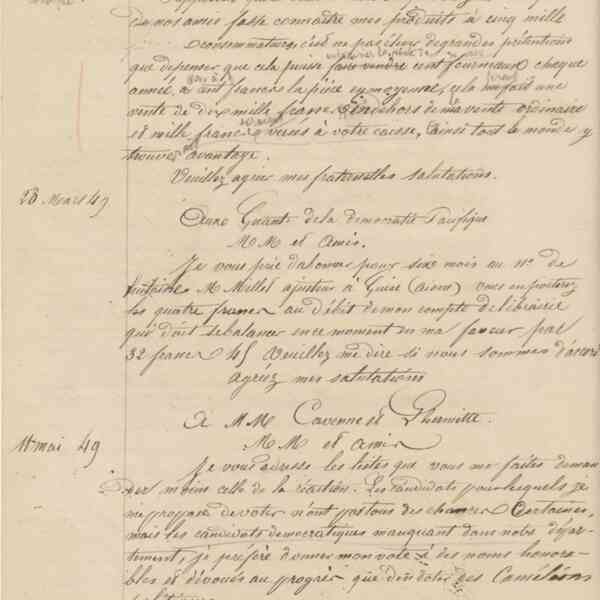 de nos amis fasse connaître mes produits à cinq mille
consommateurs, c'est ne pas élever de grandes prétentions
que de penser que cela puisse faire vendre cent fourneaux chaque
année, à cent francs la pièce en moyenne, cela fait une
vente de dix mille francs en dehors de ma vente ordinaire
et mille francs versés à votre caisse, ainsi tout le monde y
trouvera avantage.
Veuillez agréer mes fraternelles salutations.
28 Mars 49
Au Gérant de la démocratie Pacifique
MM et Amis.
Je vous prie d'abonner pour six mois au n° de
M. Millet ajusteur à Guise (aisne) vous en porterez
les quatre francs au débit de mon compte de librairie
qui doit se balancer en ce moment en ma faveur par
32 francs 45 Veuillez me dire si nous sommes d'accord
Agréez mes salutations
A MM Cavenne et Lhermitte.
11 mai 49
MM et amis
Je vous adresse les listes que vous me faites deman
der moins celle de la réaction. Les candidats pour lesquels je
me propose de voter n'ont pas tous des chances certaines,
mais les candidats démocratiques manquant dans notre dépar-
tement, je préfère donner mon vote à des noms honora-
bles et dévoués au progrès que d'en doter des Caméléons